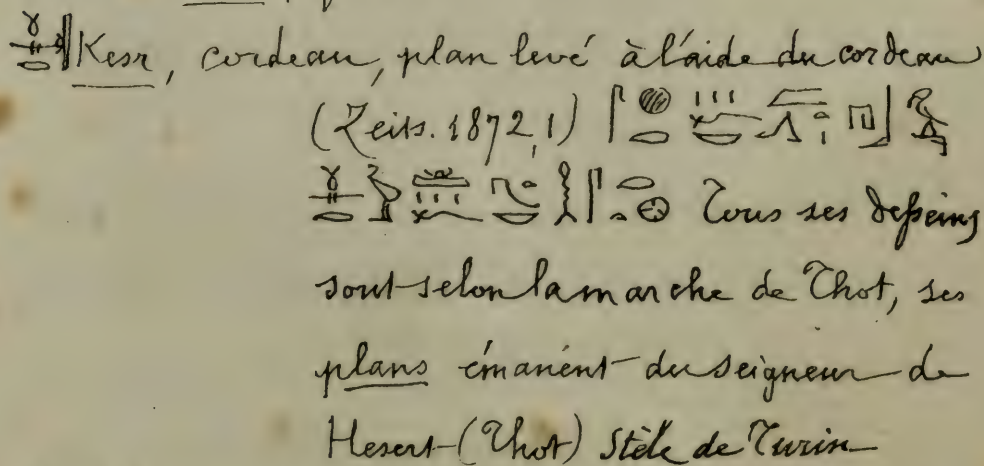 Kesr, cordeau, plan levé à l'aide du cordeau
(Zeits. 1872, 1)
Tous ses desseins
sont selon la marche de Thot, ses
plans émanent du seigneur de
Hesert (Thot) Stèle de Turin